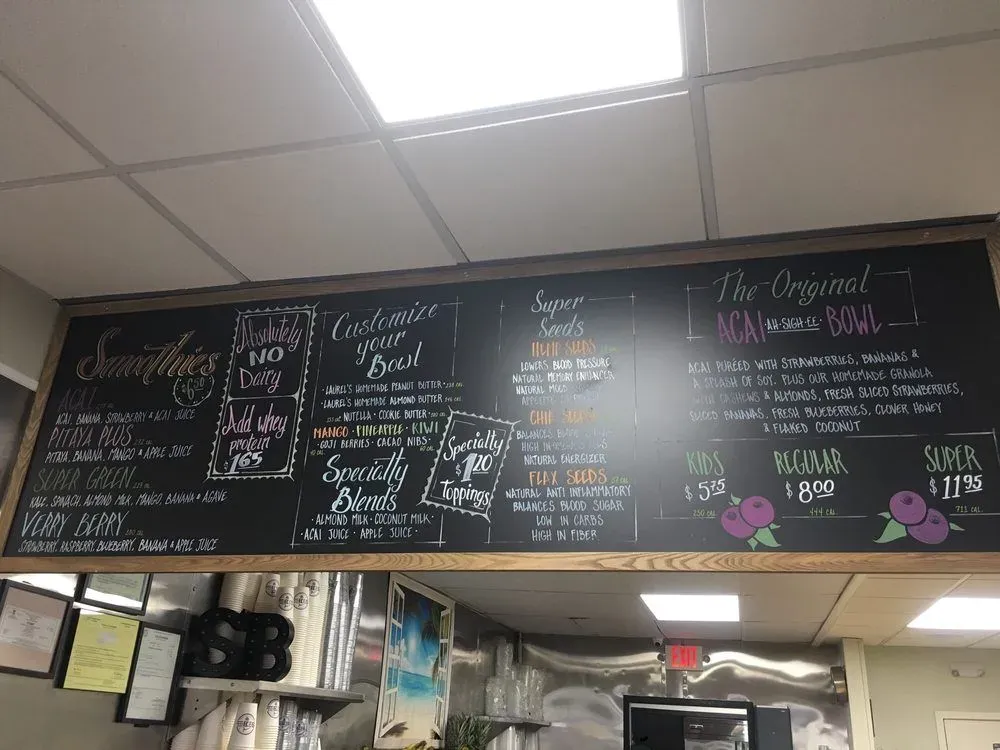 Smoothies
$6.50
ACAI
ACAI, BANANA, STRAWBERRY & ACAI JUICE
PITAYA PLUS
PITAYA, BANANA, MANGO & APPLE JUICE
SUPER GREEN
KALE, SPINACH, ALMOND MILK, MANGO, BANANA & AGAVE
VERRY BERRY
STRAWBERRY, RASPBERRY, BLUEBERRY, BANANA & APPLE JUICE
Absolutely
NO
Dairy
Add whey
protein
$1.65
Customize
your
Bowl
· LAUREL'S HOMEMADE PEANUT BUTTER ·
· LAUREL'S HOMEMADE ALMOND BUTTER
· NUTELLA · COOKIE BUTTER ·
MANGO · PINEAPPLE · KIWI
· GOJI BERRIES · CACAO NIBS ·
Specialty
Blends
· ALMOND MILK · COCONUT MILK ·
· ACAI JUICE · APPLE JUICE ·
Specialty
$1.20
Toppings
Super
Seeds
HEMP SEEDS
LOWERS BLOOD PRESSURE
NATURAL MEMORY ENHANCER
NATURAL
APPETITE
CHIA SEEDS
BALANCES BLOOD
HIGH IN
NATURAL ENERGIZER
FLAX SEEDS
NATURAL ANTI INFLAMMATORY
BALANCES BLOOD SUGAR
LOW IN CARBS
HIGH IN FIBER
The Original
ACAI ·AH·SIGH·EE· BOWL
ACAI PURÉED WITH STRAWBERRIES, BANANAS &
A SPLASH OF SOY. PLUS OUR HOMEMADE GRANOLA
WITH CASHEWS & ALMONDS, FRESH SLICED STRAWBERRIES,
SLICED BANANAS, FRESH BLUEBERRIES, CLOVER HONEY
& FLAKED COCONUT
KIDS
$5.75
250 CAL.
REGULAR
$8.00
444 CAL.
SUPER
$11.95
711 CAL.
SB
EXIT